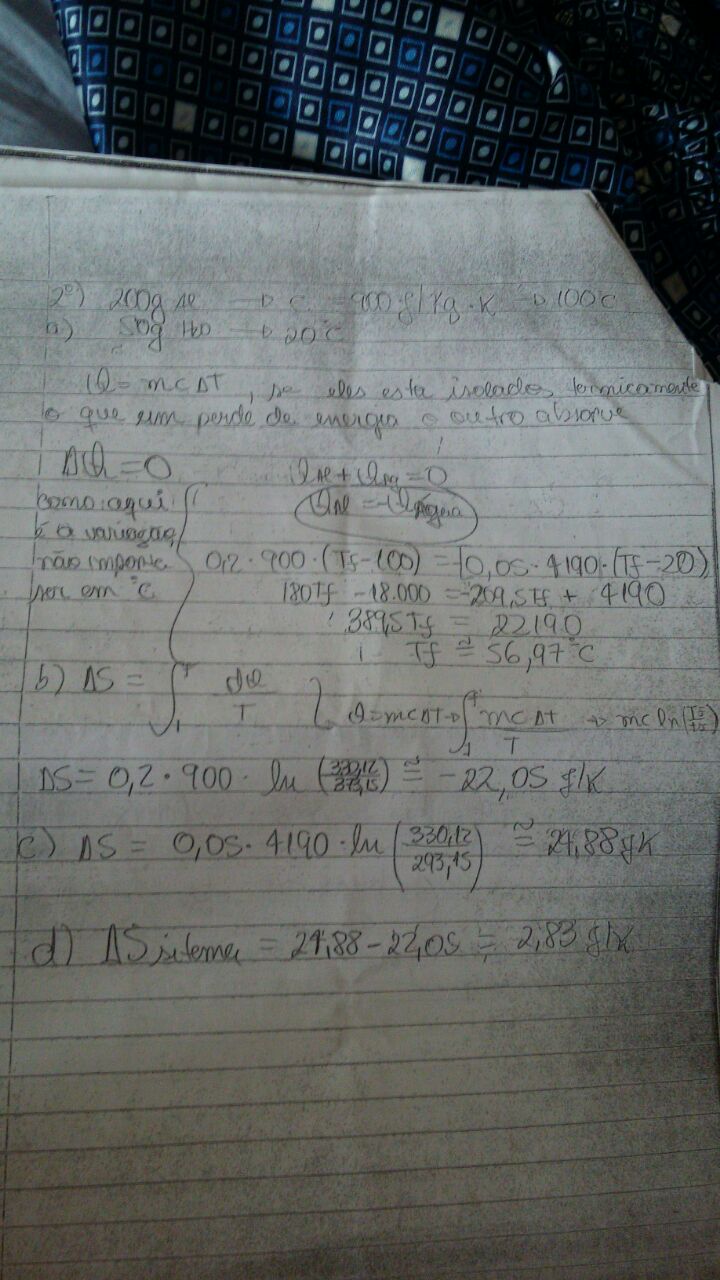 2º) 200g Al → c = 900 J/Kg·K → 100°C
a) 50g H2O → 20°C
Q = mcΔT, se eles esta isolados termicamente
o que um perde de energia o outro absorve
ΔQ = 0
QAl + QAg = 0
como aqui
é a variação,
não importa
ser em °C
QAl = -Qágua
0,2 · 900 · (Tf-100) = -[0,05 · 4190 · (Tf-20)]
180Tf - 18.000 = -209,5Tf + 4190
389,5Tf = 22190
Tf ≅ 56,97°C
b) ΔS = ∫ dQ/T Q = mcΔT → ∫ mcΔT/T → mc ln(
ΔS = 0,2 · 900 · ln (330,12/373,15) ≅ -22,05 J/K
c) ΔS = 0,05 · 4190 · ln (330,12/293,15) ≅ 24,88 J/K
d) ΔSsistema = 24,88 - 22,05 = 2,83 J/K